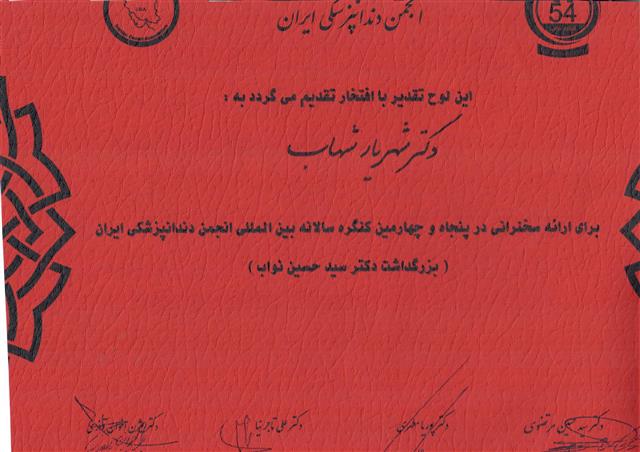 انجمن دندانپزشکی ایران
54
این لوح تقدیر با افتخار تقدیم می گردد به :
دکتر شهریار شهاب
برای ارائه سخنرانی در پنجاه و چهارمین کنگره سالانه بین المللی انجمن دندانپزشکی ایران
( بزرگداشت دکتر سید حسین نواب )
دکتر سید حسین مرتضوی
دکتر پوریا
دکتر علی تاجرنیا
دکتر